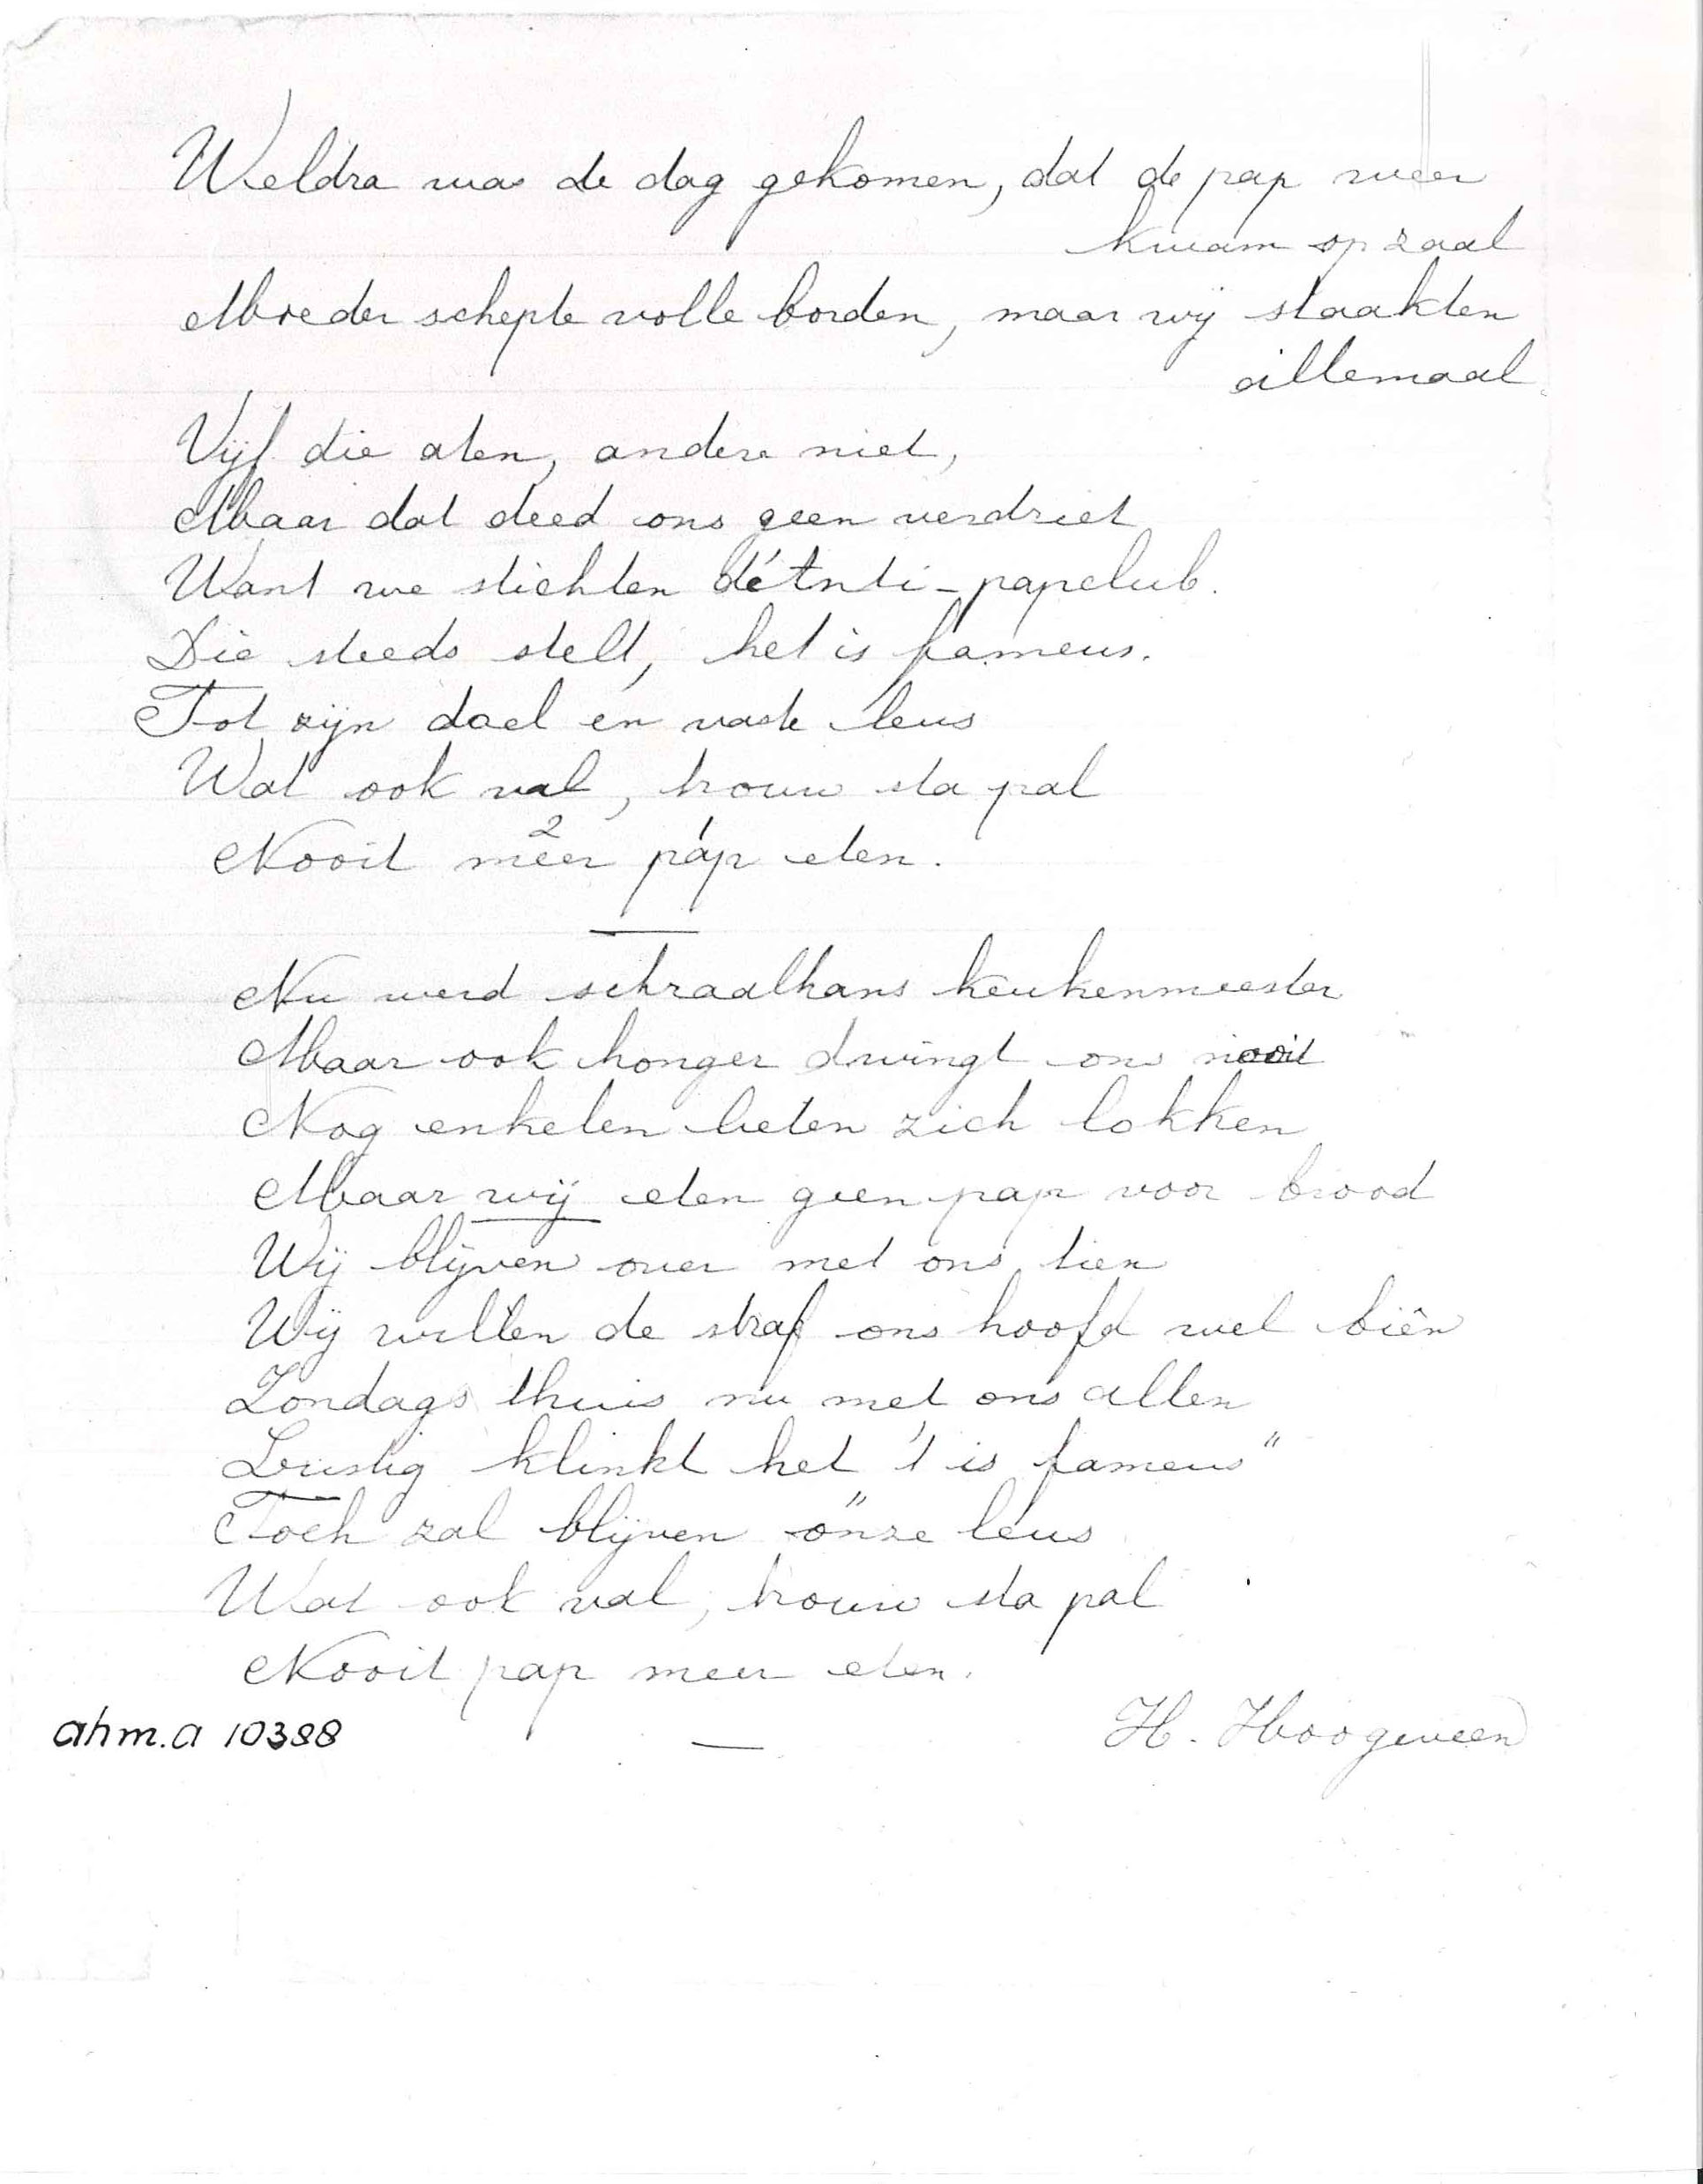 Weldra was de dag gekomen, dat de pap weer
kwam op zaal
Moeder schepte volle borden, maar wij staakten
allemaal
Vijf die aten, andere niet,
Maar dat deed ons geen verdriet
Want we stichten d'Anti-papclub.
Die steeds stelt, het is fameus.
Tot zijn doel en vaste leus
Wat ook val, trouw sta pal
2 1
Nooit meer pap eten.
Nu werd schraalhans keukenmeester
Maar ook honger dwingt ons nooit
Nog enkelen lieten zich lokken
Maar wij eten geen pap voor brood
Wij blijven over met ons tien
Wij willen de straf ons hoofd wel biên
Zondags thuis nu met ons allen
Lustig klinkt het 't is fameus"
Toch zal blijven "onze leus
Wat ook val, trouw sta pal
Nooit pap meer eten.
ahm.a 10388 H. Hoogeveen